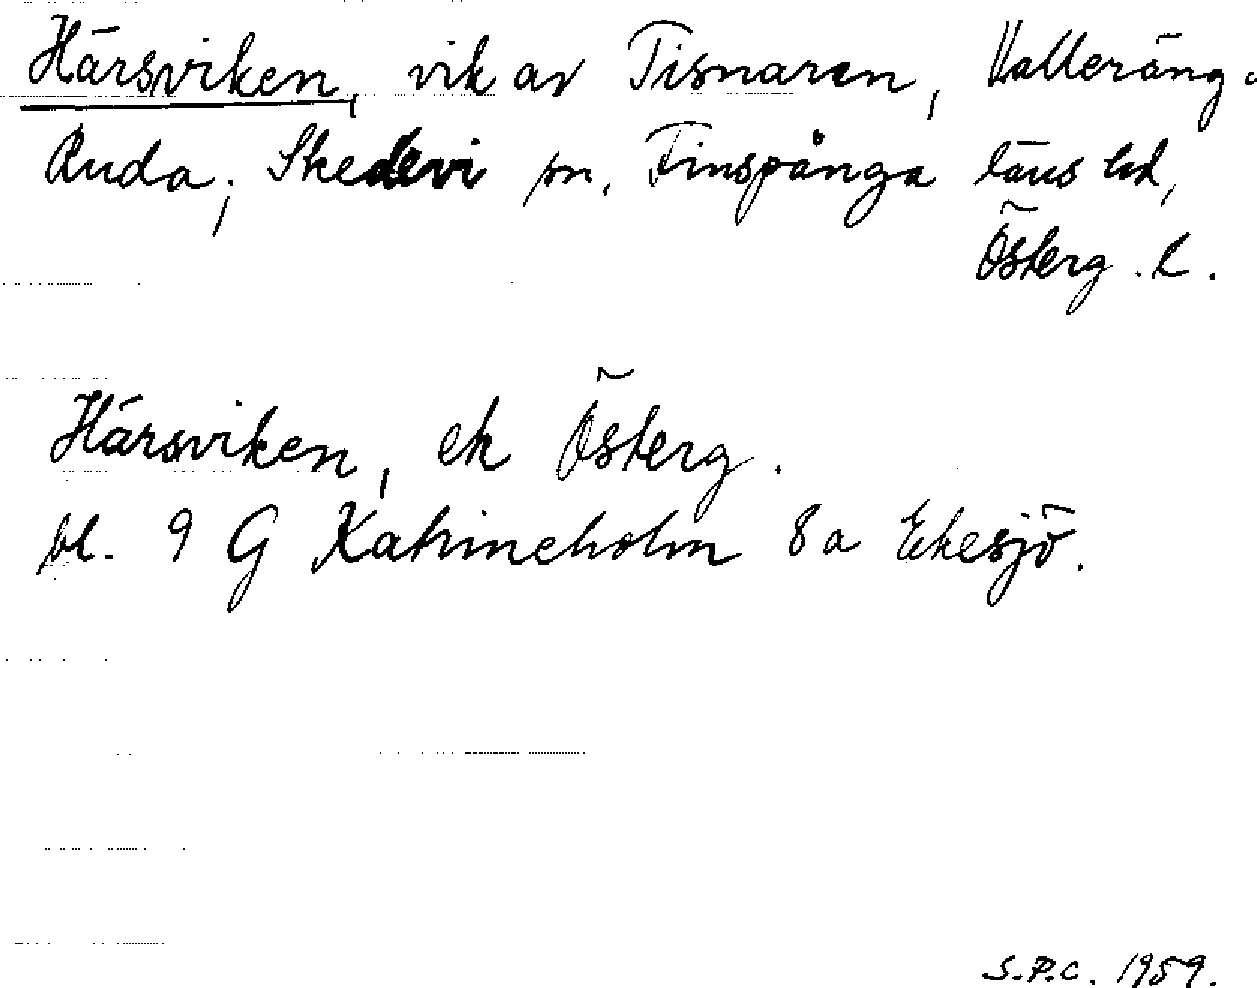 Härsviken, vik av Tisnaren, Valleräng.
Ruda, Skedevi sn. Finspånga läns hd,
Österg. l.
Härsviken, ek Österg.
bl. 9 G Katrineholm 8a Ekesjö.
S.P.C. 1959.